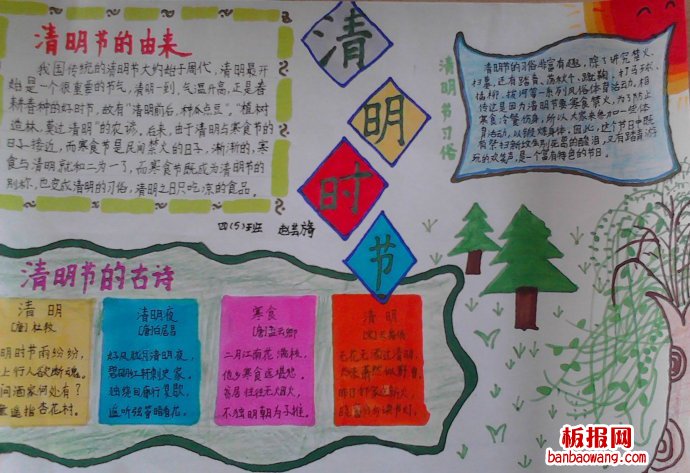 清明节的由来
我国传统的清明节大约始于周代，清明最开
始是一个很重要的节气，清明一到，气温升高，正是春
耕春种的好时节，故有"清明前后，种瓜点豆。""植树
造林，莫过清明"的农谚。后来，由于清明与寒食节的
日子接近，而寒食节是民间禁火的日子，渐渐的，寒
食与清明就和二为一了，而寒食节既成为清明节的
别称，也变成清明的习俗，清明之日只吃凉的食品。
四(5)班
清
明
时
节
清明节习俗
清明节的习俗丰富有趣，除了讲究禁火、
扫墓，还有踏青、荡秋千、蹴鞠、打马球、
插柳、拔河等一系列风俗体育活动。相
传这是因为清明节要寒食禁火，为了防止
寒食冷餐伤身，所以大家来参加一些体
育活动，以锻炼身体。因此，这个节日中既
有祭扫新坟生别死离的酸泪，又有踏青游
玩的欢笑声，是一个富有特色的节日。
清明节的古诗
清明
[唐]杜牧
明时节雨纷纷，
上行人欲断魂。
问酒家何处有？
童遥指杏花村。
清明夜
[唐]白居易
好风胧月清明夜，
碧砌红轩刺史家。
独绕回廊行复歇，
遥听弦管暗看花。
寒食
[唐]孟云卿
二月江南花满枝，
他乡寒食远堪悲。
贫居往往无烟火，
不独明朝为子推。
清明
无花无酒过清明，
兴味萧然似野僧。
昨日邻家乞新火，
晓窗分与读书灯。
板报网
banbaowang.com